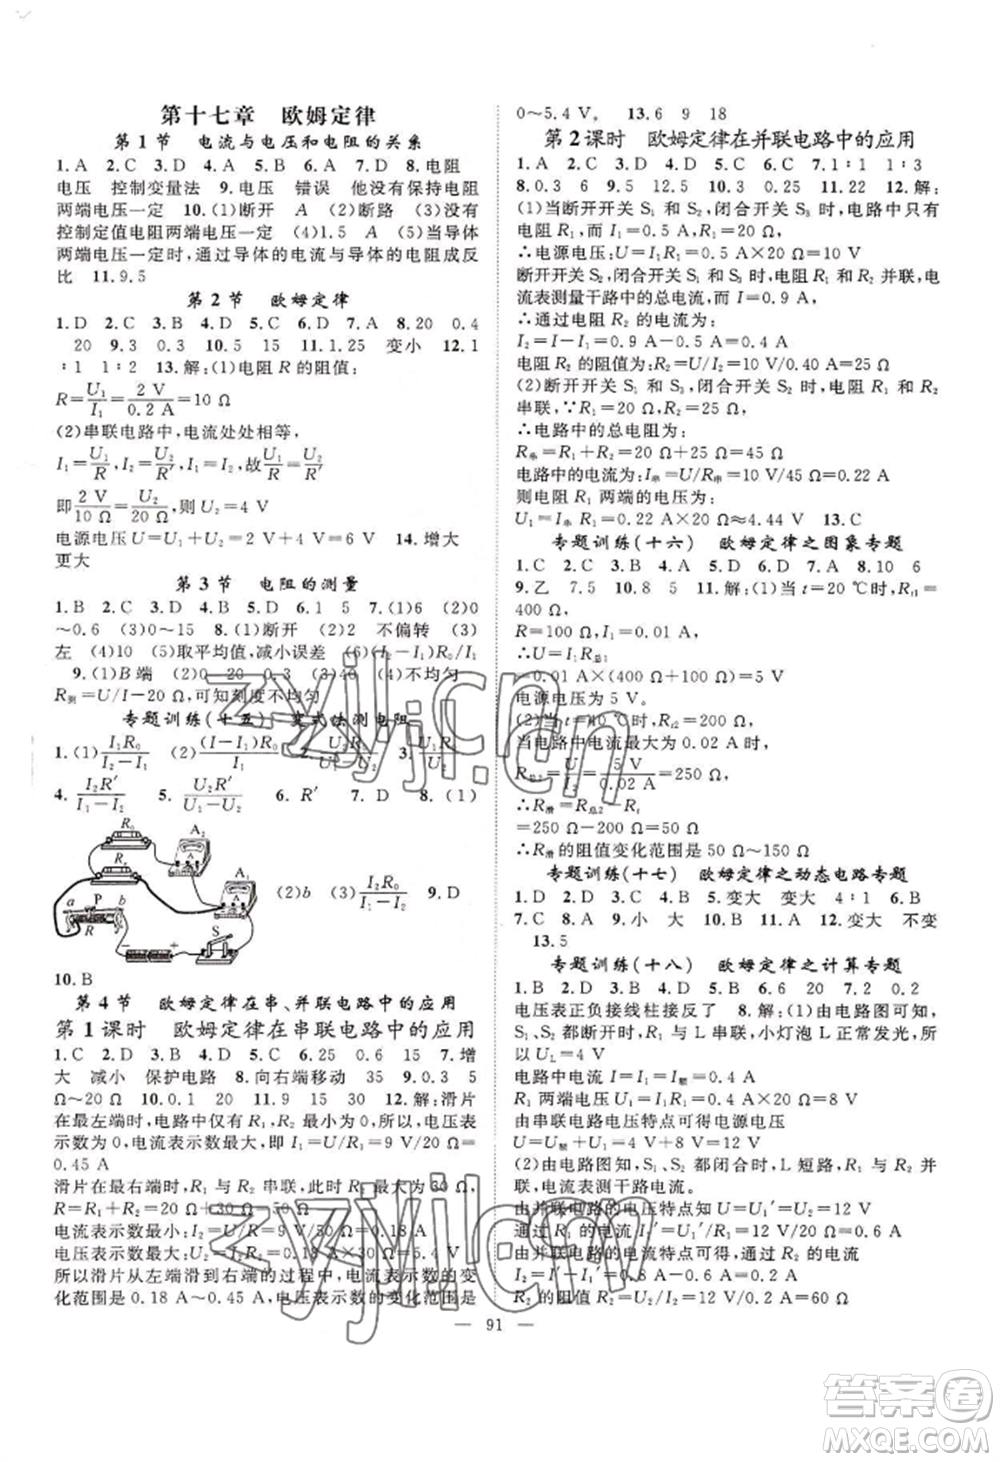 第十七章 欧姆定律
第1节 电流与电压和电阻的关系
1.A 2.C 3.D 4.A 5.D 6.A 7.D 8.电阻
电压 控制变量法 9.电压 错误 他没有保持电阻
两端电压一定 10.(1)断开 A (2)断路 (3)没有
控制定值电阻两端电压一定 (4)1.5 A (5)当导体
两端电压一定时,通过导体的电流与导体的电阻成反
比 11.9.5
第2节 欧姆定律
1.D 2.C 3.B 4.D 5.D 6.D 7.A 8.20 0.4
20 9.3 0.3 10.5 15 11.1.25 变小 12.1
∶1 1∶2 13.解:(1)电阻R的阻值:
R=U₁/I₁=2 V/0.2 A=10 Ω
(2)串联电路中,电流处处相等,
I₁=U₁/R,I₂=U₂/R′,I₁=I₂,故U₁/R=U₂/R′
即2 V/10 Ω=U₂/20 Ω,则U₂=4 V
电源电压U=U₁+U₂=2 V+4 V=6 V 14.增大
更大
第3节 电阻的测量
1.B 2.C 3.D 4.D 5.D 6.1 5 7.(1)0 (2)0
～0.6 (3)0～15 8.(1)断开 (2)不偏转 (3)
左 (4)10 (5)取平均值,减小误差 (6)(I₂-I₁)R₀/I₁
9.(1)B端 (2)0 20 0.3 (3)40 (4)不均匀
R测=U/I-20 Ω,可知刻度不均匀
专题训练(十五) 变式法测电阻
1.(1)I₁R₀/(I-I₁) (2)(I-I₁)R₀/I₁ 2.U₂R₀/(U₁-U₂) 3.U₁R₀/U₂
4.I₂R′/(I₁-I₂) 5.U₂R′/(U₁-U₂) 6.R′ 7.D 8.(1)
R₀ A₂
Rₓ A₁
a P b
R S
(2)b (3)I₂R₀/(I₁-I₂) 9.D
10.B
第4节 欧姆定律在串、并联电路中的应用
第1课时 欧姆定律在串联电路中的应用
1.C 2.D 3.A 4.D 5.C 6.25 0.6 15 7.增
大 减小 保护电路 8.向右端移动 35 9.0.3 5
Ω～20 Ω 10.0.1 20 11.0.15 12.解:滑片
在最左端时,电路中仅有R₁,R₂=0 Ω,所以,电压表
示数为0,电流表示数最大,即I₁=U/R₁=9 V/20 Ω=
0.45 A
滑片在最右端时,R₁与R₂串联,所以总电阻为
R=R₁+R₂=20 Ω+30 Ω=50 Ω
电流表示数最小:I₂=U/R=9 V/50 Ω=0.18 A
电压表示数最大:U₂=I₂R₂=0.18 A×30 Ω=5.4 V
所以滑片从左端滑到右端的过程中,电流表示数的变
化范围是0.18 A～0.45 A,电压表示数的变化范围是
0～5.4 V。 13.6 9 18
第2课时 欧姆定律在并联电路中的应用
1.A 2.C 3.D 4.A 5.D 6.C 7.1∶1 1∶3
8.0.3 6 9.5 12.5 10.3 0.25 11.22 12.解:
(1)当断开开关S₁和S₂,闭合开关S₃时,电路中只有
电阻R₁,而I=0.5 A,R₁=20 Ω,
∴电源电压:U=IR₁=0.5 A×20 Ω=10 V
断开开关S₂,闭合开关S₁、S₃时,电阻R₁和R₂并联,电
流表测量干路中的总电流,而I=0.9 A
∴通过电阻R₂的电流为:
I₂=I-I₁=0.9 A-0.5 A=0.4 A
电阻R₂的阻值为:R₂=U/I₂=10 V/0.40 A=25 Ω
(2)断开开关S₁和S₃,闭合开关S₂时,电阻R₁和R₂
串联,∵R₁=20 Ω,R₂=25 Ω,
∴电路中的总电阻为:
R串=R₁+R₂=20 Ω+25 Ω=45 Ω
电路中的电流为:I串=U/R串=10 V/45 Ω=0.22 A
则电阻R₁两端的电压为:
U₁=I串R₁=0.22 A×20 Ω≈4.44 V 13.C
专题训练(十六) 欧姆定律之图象专题
1.C 2.B 3.D 4.C 5.B 6.D 7.A 8.10 6
9.乙 7.5 10.8 5 11.解:(1)当t=20℃时,Rt1=
400 Ω,
R=100 Ω,I=0.01 A,
∴U=I₁R总1=0.01 A×(400 Ω+100 Ω)=5 V
电源电压为5 V。
(2)当t=100℃时,Rt2=200 Ω,
当电路中电流最大为0.02 A时,
R总2=U/I₂=5 V/0.02 A=250 Ω,
∴R滑=R总2-Rt
=250 Ω-200 Ω=50 Ω
∴R滑的阻值变化范围是50 Ω～150 Ω
专题训练(十七) 欧姆定律之动态电路专题
1.D 2.D 3.C 4.B 5.变大 变大 变大 6.B
7.C 8.A 9.小 大 10.B 11.A 12.变大 不变
13.5
专题训练(十八) 欧姆定律之计算专题
1.D 2.C 3.D 4.B 5.C 6.0.2 7.12 0.2
电压表正负接线柱接反了 8.(1)由电路图可知,
S₁、S₂都断开时,R₁与L串联,小灯泡L正常发光,所
以UL=4 V
电路中电流I=I₁=I额=0.4 A
R₁两端电压U₁=I₁R₁=0.4 A×20 Ω=8 V
由串联电路电压特点可得电源电压
U=U额+U₁=4 V+8 V=12 V
(2)由电路图知,S₁、S₂都闭合时,L短路,R₁与R₂并
联,电流表测干路电流。
由并联电路电压特点知U₁′=U₂=U=12 V
R₁的电流I₁′=U₁′/R₁=12 V/20 Ω=0.6 A
由并联电路的电流特点可得,通过R₂的电流
I₂=I′-I₁′=0.8 A-0.6 A=0.2 A
R₂的阻值为R₂=U₂/I₂=12 V/0.2 A=60 Ω
91
zyjl.cn
zyjl.cn
答案圈
MXQE.COM